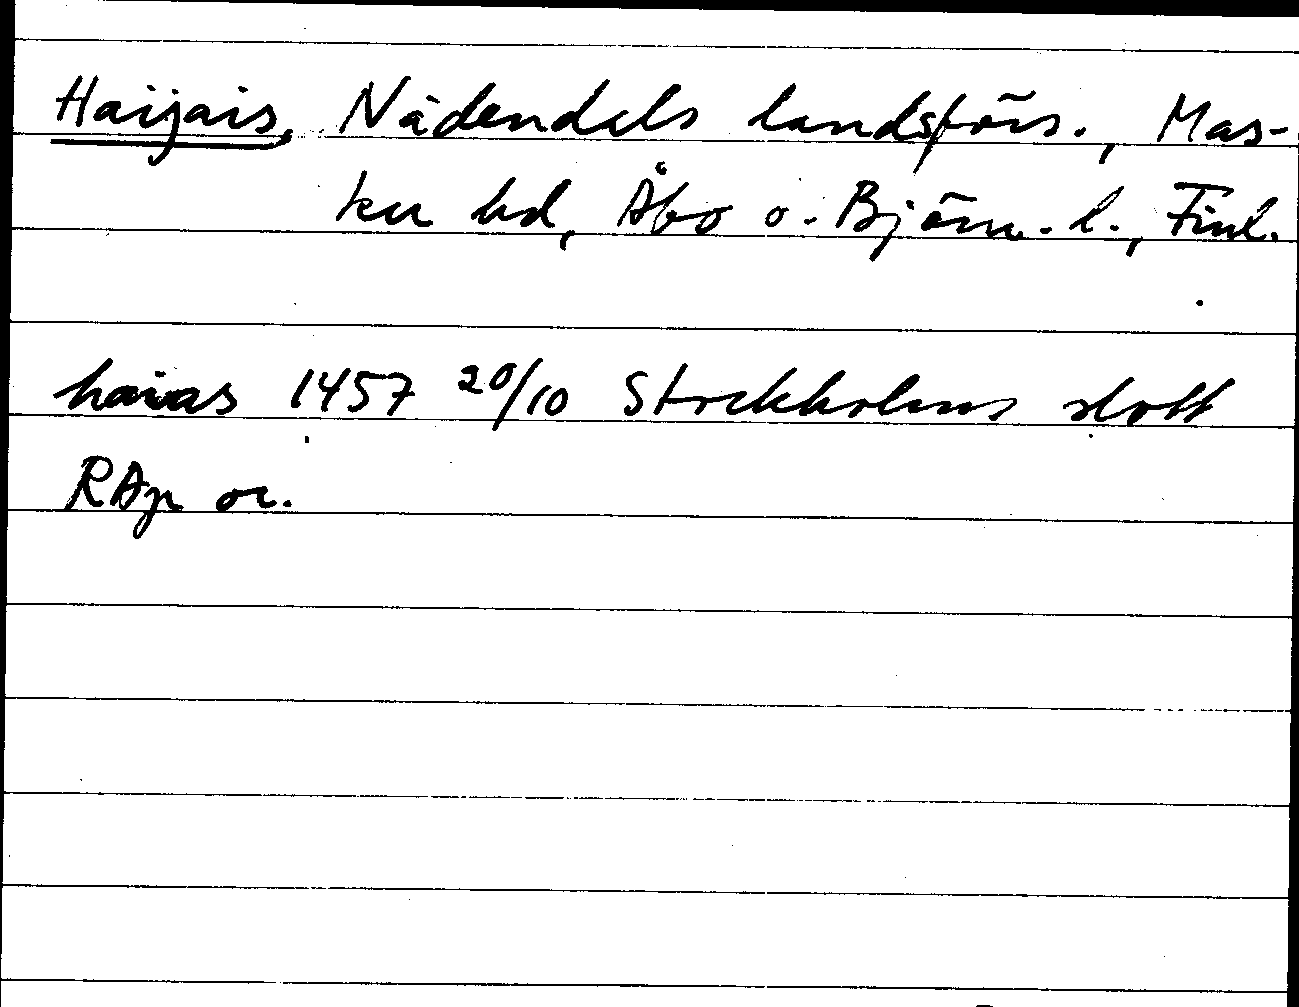 Haijais, Nådendals landsförs., Mas-
ku hd, Åbo o. Björn. l., Finl.
haias 1457 20/10 Stockholms slott
RAp or.